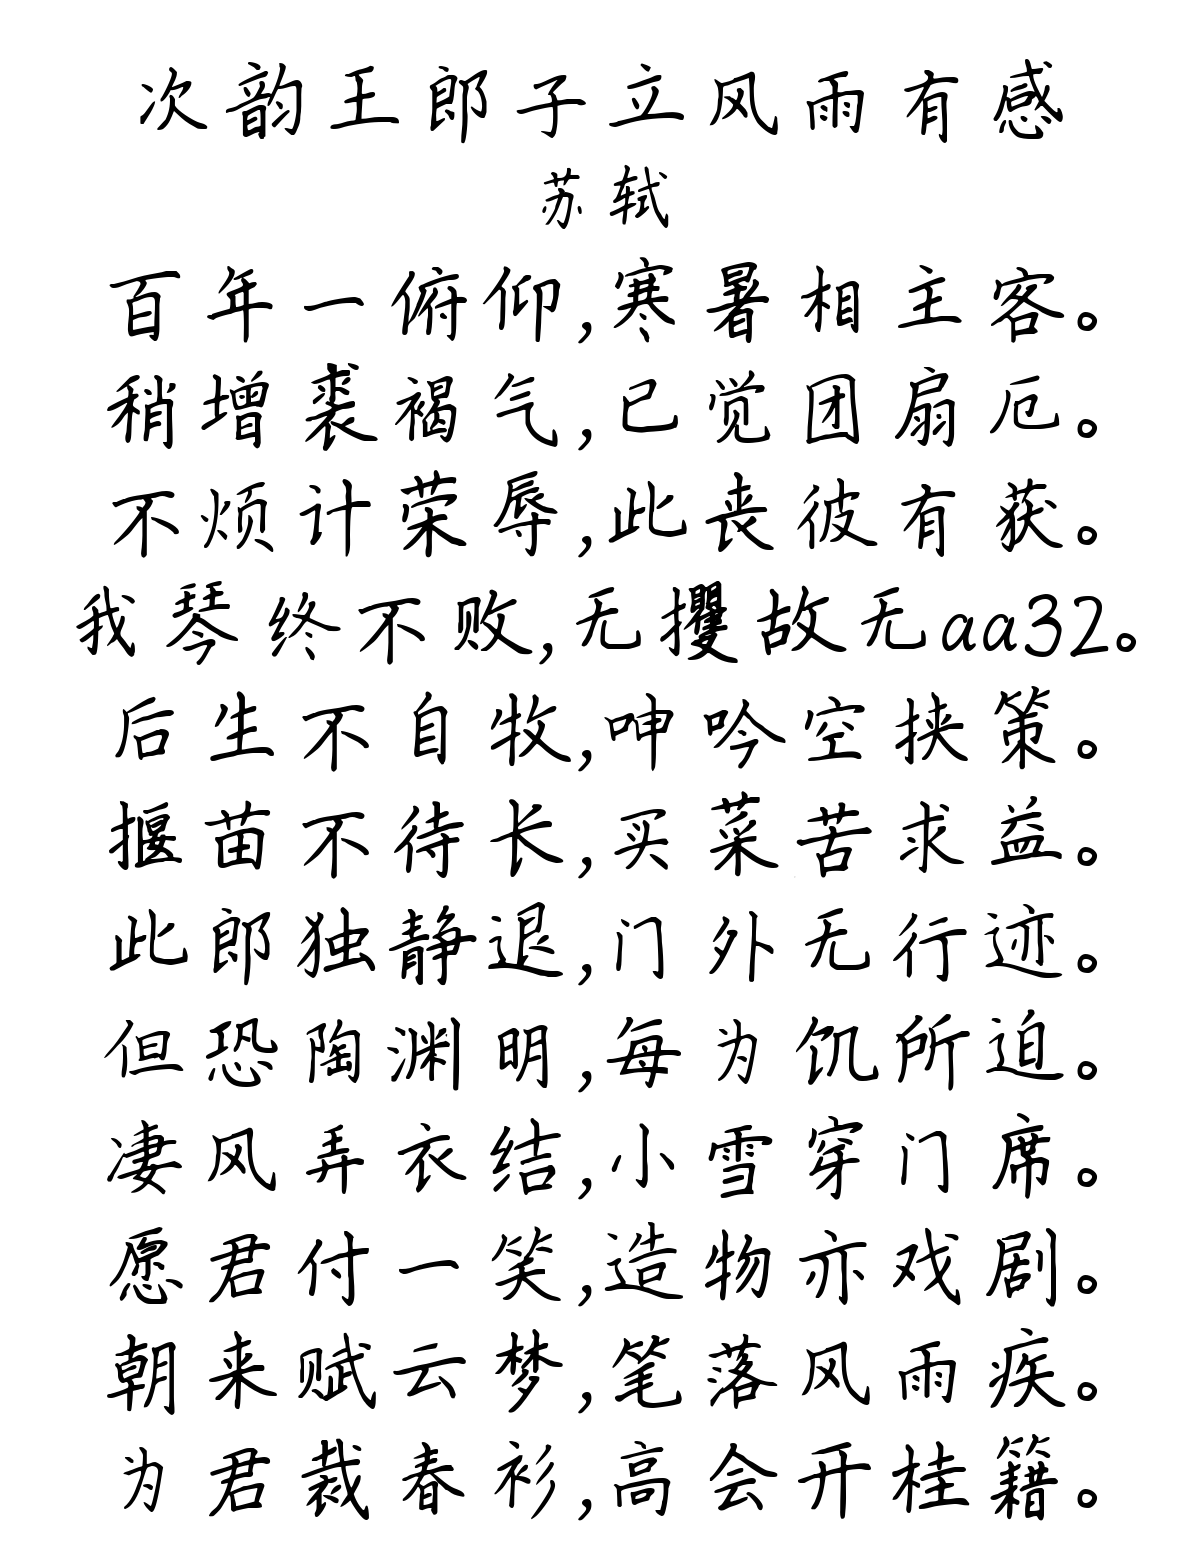 次韵王郎子立风雨有感
苏轼
百年一俯仰,寒暑相主客。
稍增裘褐气,已觉团扇厄。
不烦计荣辱,此丧彼有获。
我琴终不败,无攫故无aa32。
后生不自牧,呻吟空挟策。
揠苗不待长,买菜苦求益。
此郎独静退,门外无行迹。
但恐陶渊明,每为饥所迫。
凄风弄衣结,小雪穿门席。
愿君付一笑,造物亦戏剧。
朝来赋云梦,笔落风雨疾。
为君裁春衫,高会开桂籍。